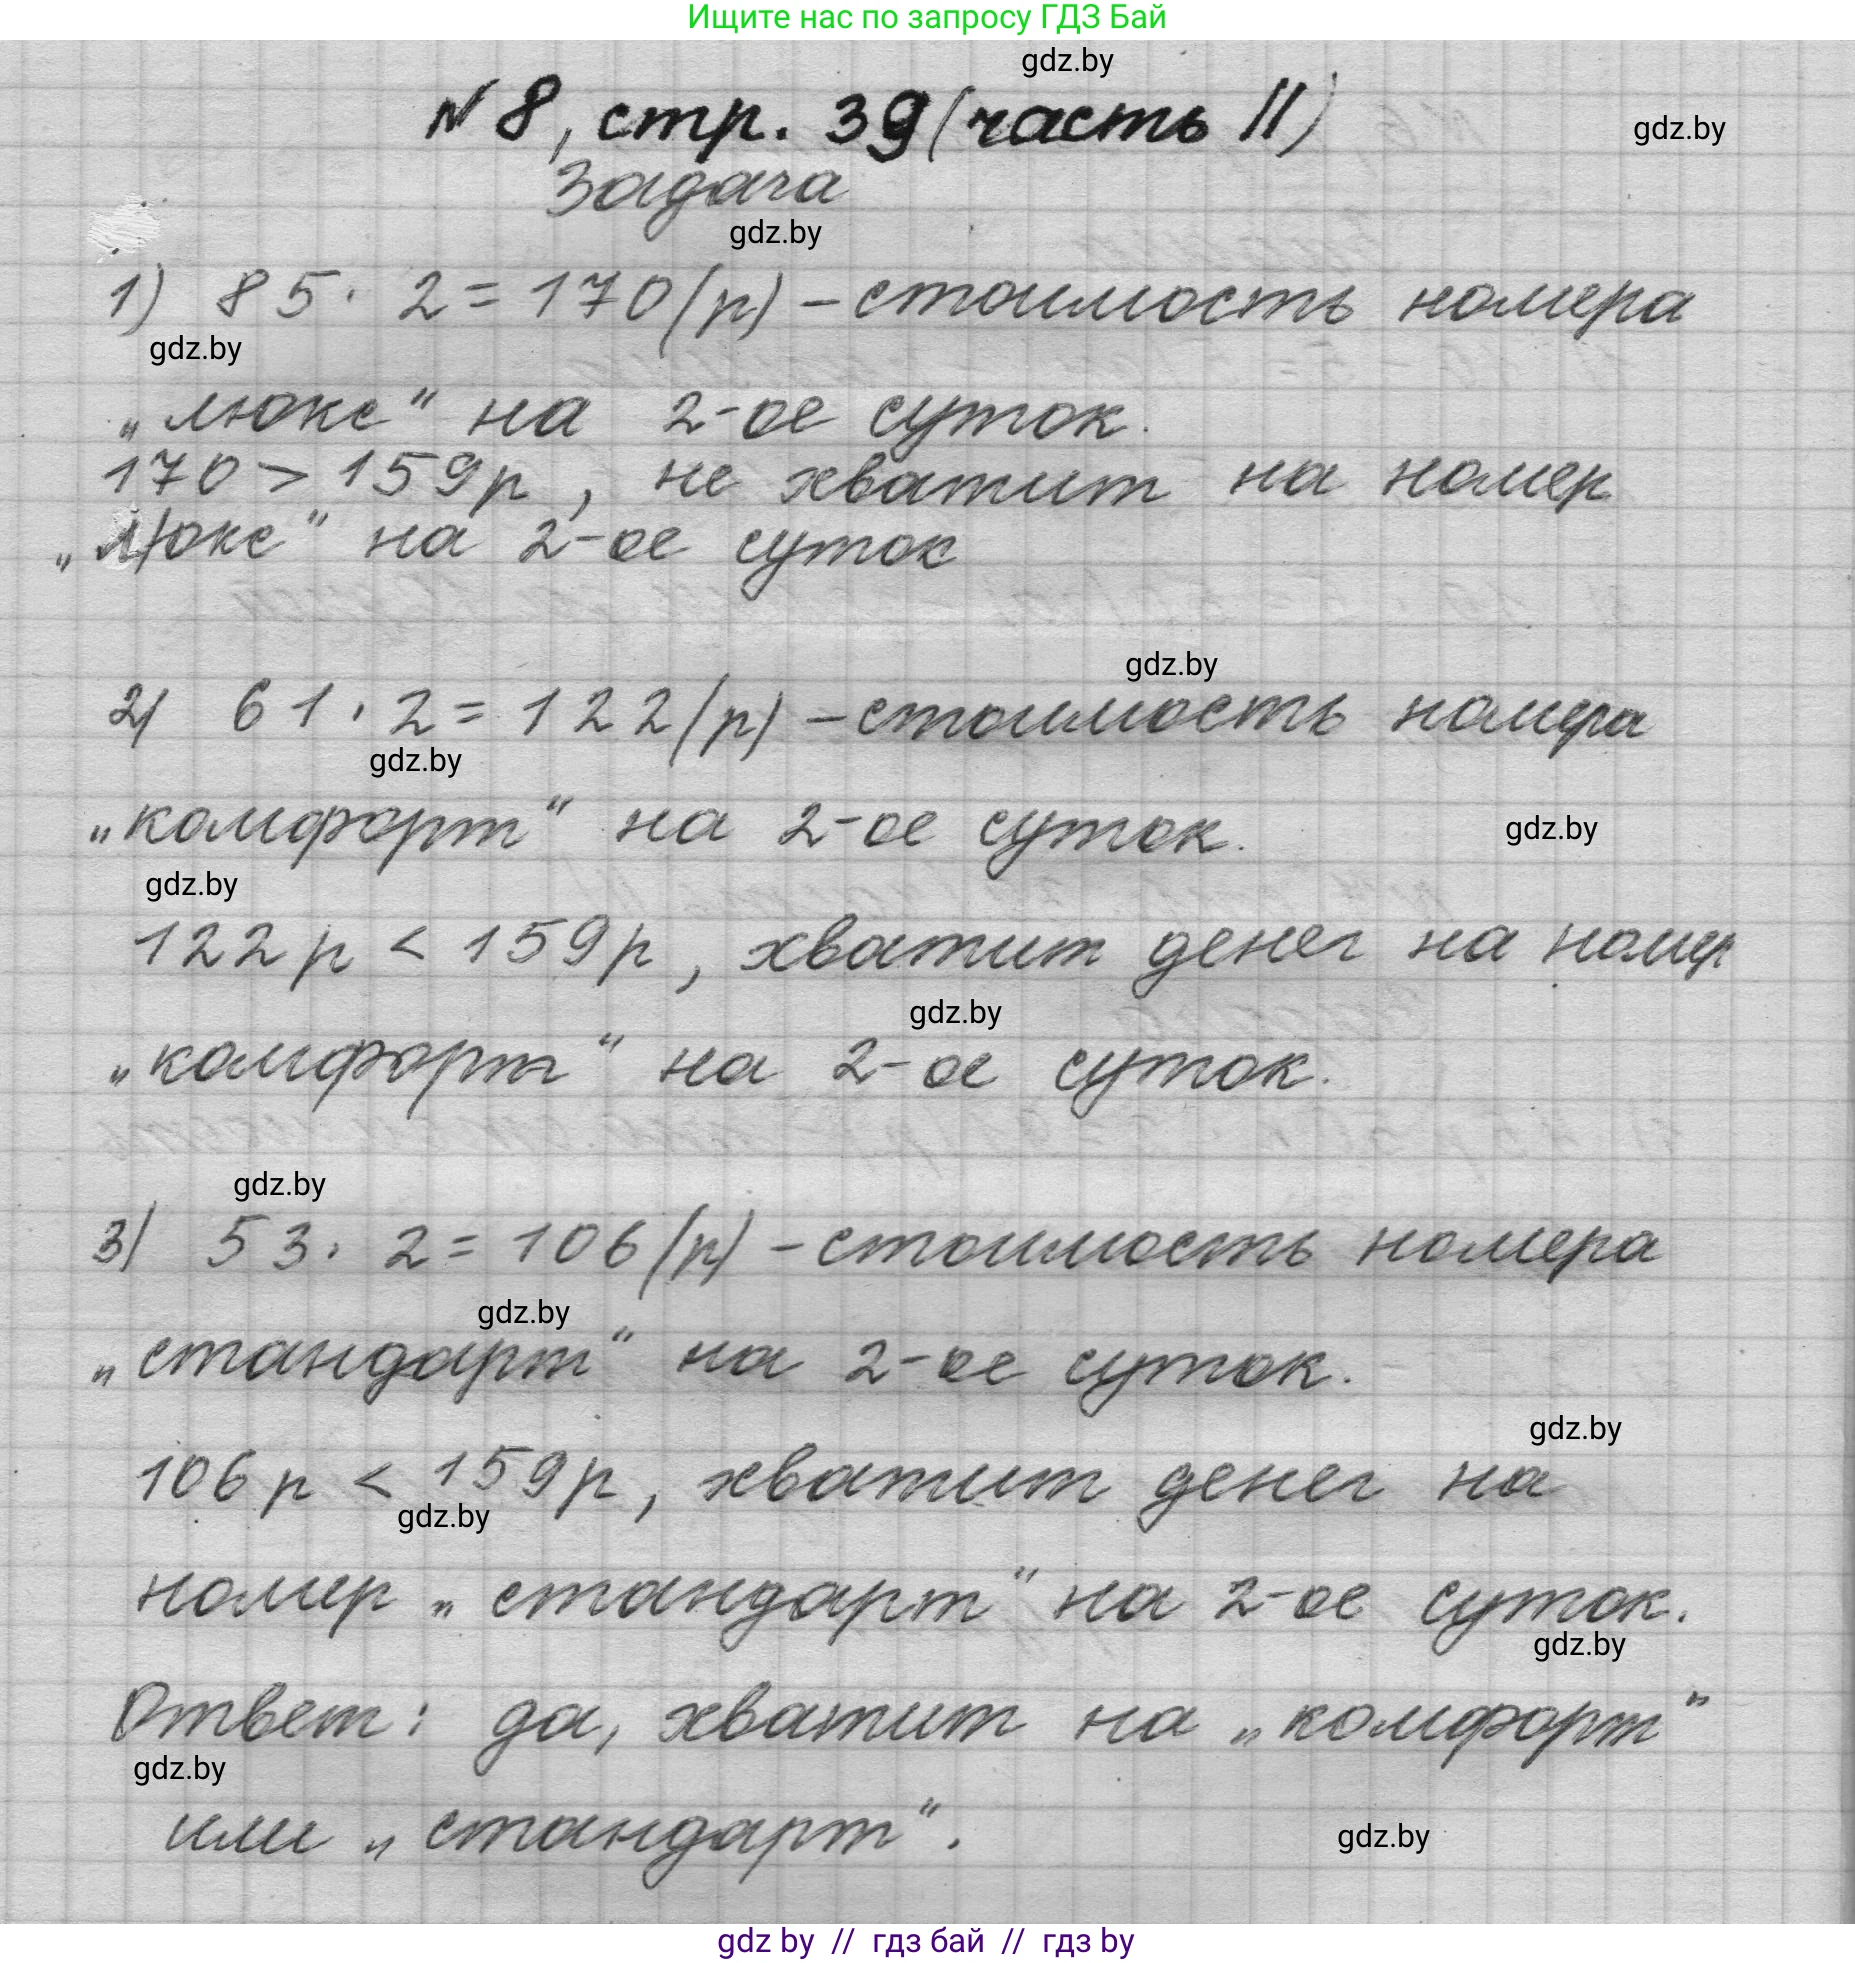 Ищите нас по запросу ГДЗ Бай
gdz.by
№ 8, стр. 39 (часть II)
gdz.by
Задача
gdz.by
1) 85 · 2 = 170 (р) – стоимость номера
gdz.by
„люкс“ на 2-ое суток.
170 > 159 р, не хватит на номер
„Люкс“ на 2-ое суток
gdz.by
2) 61 · 2 = 122 (р) – стоимость номера
gdz.by
„комфорт“ на 2-ое суток.
gdz.by
gdz.by
122 р < 159 р, хватит денег на номер
gdz.by
„комфорт“ на 2-ое суток.
gdz.by
3) 53 · 2 = 106 (р) – стоимость номера
gdz.by
„стандарт“ на 2-ое суток.
gdz.by
106 р < 159 р, хватит денег на
gdz.by
номер „стандарт“ на 2-ое суток.
gdz.by
Ответ: да, хватит на „комфорт“
gdz.by
или „стандарт“.
gdz.by
gdz by // гдз бай // гдз by